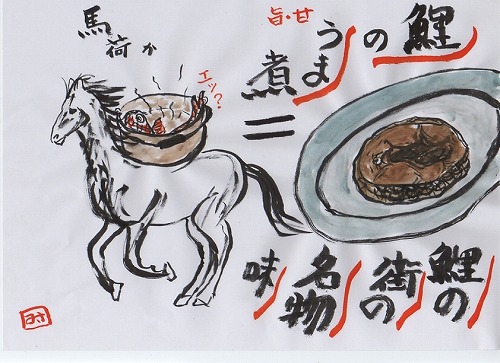 鯉のうま煮
旨・甘
=
馬荷か
エッ?
鯉の
街の
名物
味